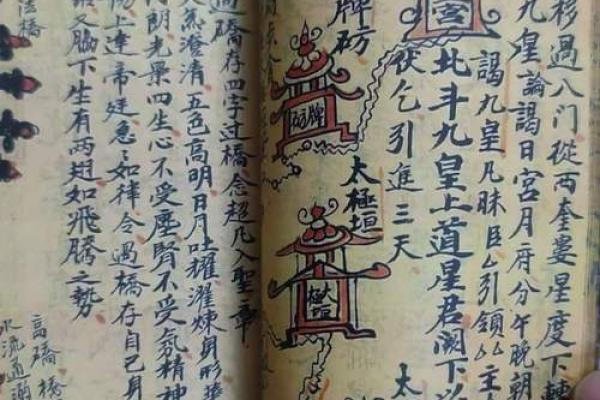 移過八门從两奎婁星度下轉
九皇論謁日宮月府分午晚朝
謁九皇凡昧臣厶引領厶主
北斗九皇上道星君闕下
宮
伏乞引進三天
太
牌砺
太極垣
過礄存四字过橋念超凡入聖章
澄清五色高明日月吐耀濯煉身形
朗光景四生心不受塵腎不受氛精神
上達帝廷急〻如律令過橋存自己身
又脚下生有两翅如飛騰之勢
法橋
高礄橋
水流通